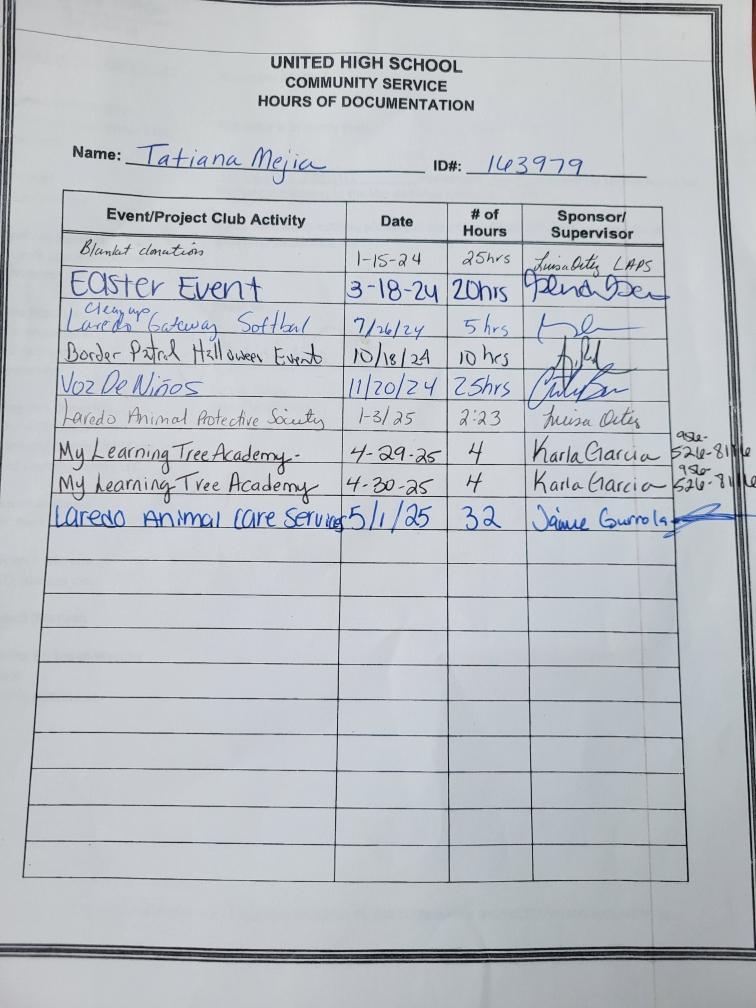 UNITED HIGH SCHOOL
COMMUNITY SERVICE
HOURS OF DOCUMENTATION
Name: Tatiana Mejia ID#: 143979
Event/Project Club Activity Date # of Hours Sponsor/Supervisor
Blanket donations 1-15-24 25hrs Luisa Ortiz LAPS
Easter Event 3-18-24 20hrs
clean up
Laredo Gateway Softbal 7/26/24 5 hrs
Border Patrol Halloween Event 10/18/24 10 hrs
Voz De Niños 11/20/24 25hrs
Laredo Animal Protective Society 1-3/25 2:23 Luisa Ortiz
My Learning Tree Academy- 4-29-25 4 Karla Garcia 956-526-8116
My Learning Tree Academy 4-30-25 4 Karla Garcia 956-526-8116
Laredo Animal Care Services 5/1/25 32 Jaime Gurrola